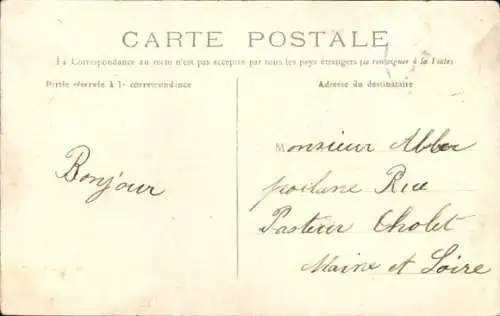 CARTE POSTALE
La Correspondance au recto n'est pas acceptée par tous les pays étrangers (se renseigner à la Poste)
Partie réservée à la correspondance
Adresse du destinataire
Bonjour
Monsieur
Rue
Pasteur Cholet
Maine et Loire